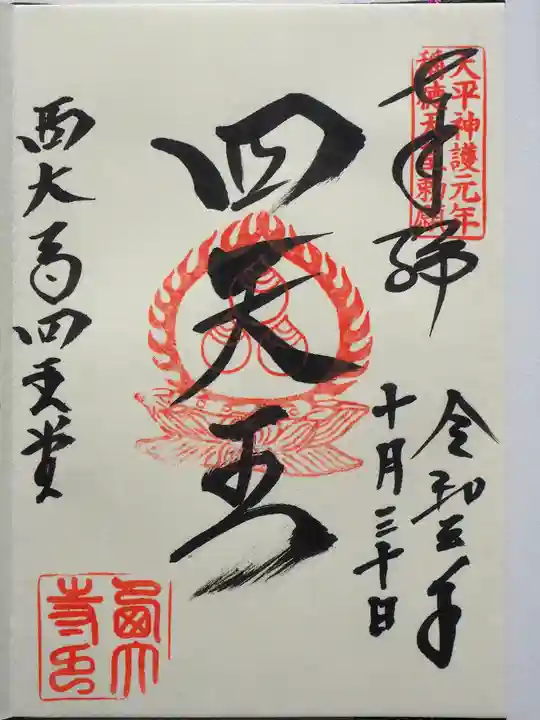 奉拝
天平神護元年
稱徳天皇勅願
令和五年
十月三十日
四天王
西大寺四王堂
西大寺印